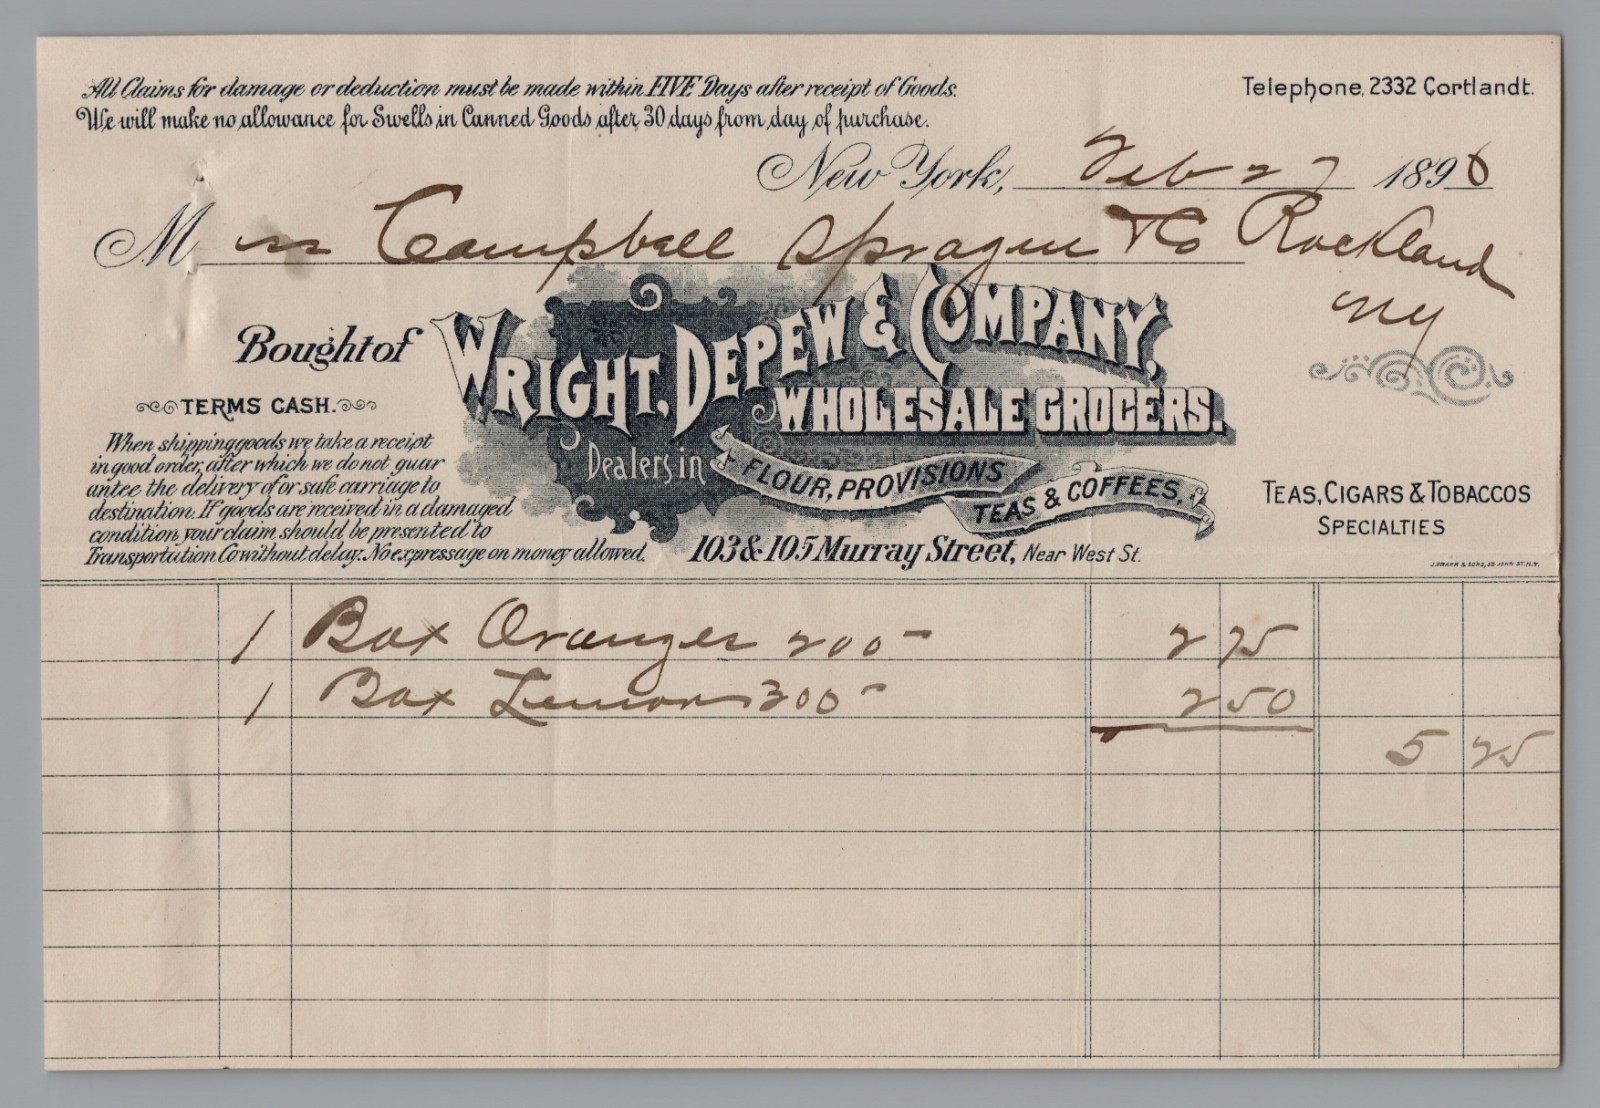 All Claims for damage or deduction must be made within FIVE Days after receipt of Goods.
We will make no allowance for Swells in Canned Goods after 30 days from day of purchase.
Telephone, 2332 Cortlandt.
New York, Feb 27 1896
M ss Campbell Sprague & Co Rockland
NY
Bought of WRIGHT, DEPEW & COMPANY,
WHOLESALE GROCERS.
TERMS CASH.
Dealers in FLOUR, PROVISIONS
TEAS & COFFEES,
When shipping goods we take a receipt
in good order, after which we do not guar
antee the delivery of or safe carriage to
destination. If goods are received in a damaged
condition your claim should be presented to
Transportation Co. without delay. No expressage on money allowed.
TEAS, CIGARS & TOBACCOS
SPECIALTIES
103 & 105 Murray Street, Near West St.
J. FRANK & SONS, 55 JOHN ST. N.Y.
1 Box Oranges 200- 2 75
1 Box Lemons 300- 2 50
5 25